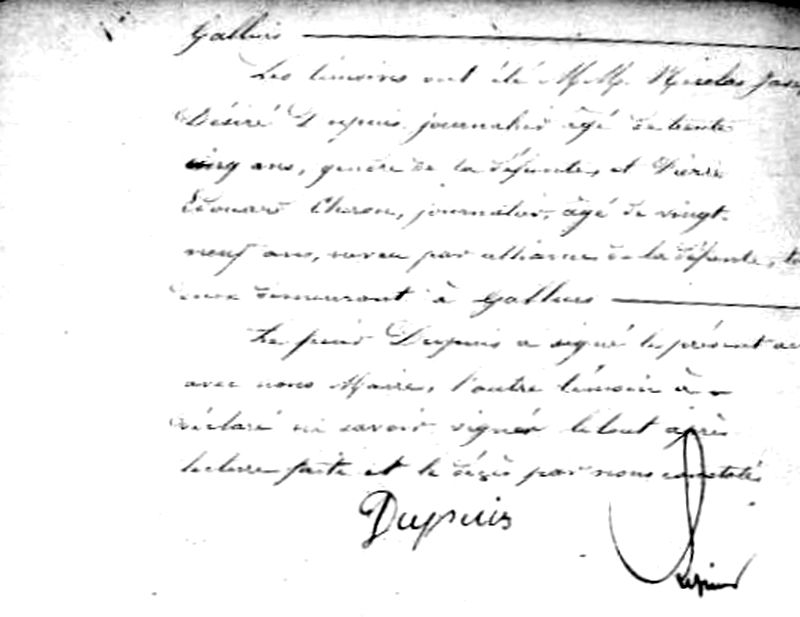 Galluis
Les témoins ont été M.M. Nicolas
Désiré Dupuis, journalier âgé de trente
cinq ans, gendre de la défunte, et Pierre
Edouard Cheron, journalier, âgé de vingt-
neuf ans, neveu par alliance de la défunte,
deux demeurant à Galluis
Le sieur Dupuis a signé le présent
avec nous Maire, l'autre témoin a
déclaré ne savoir signer le tout après
lecture faite et le décès par nous constaté
Dupuis